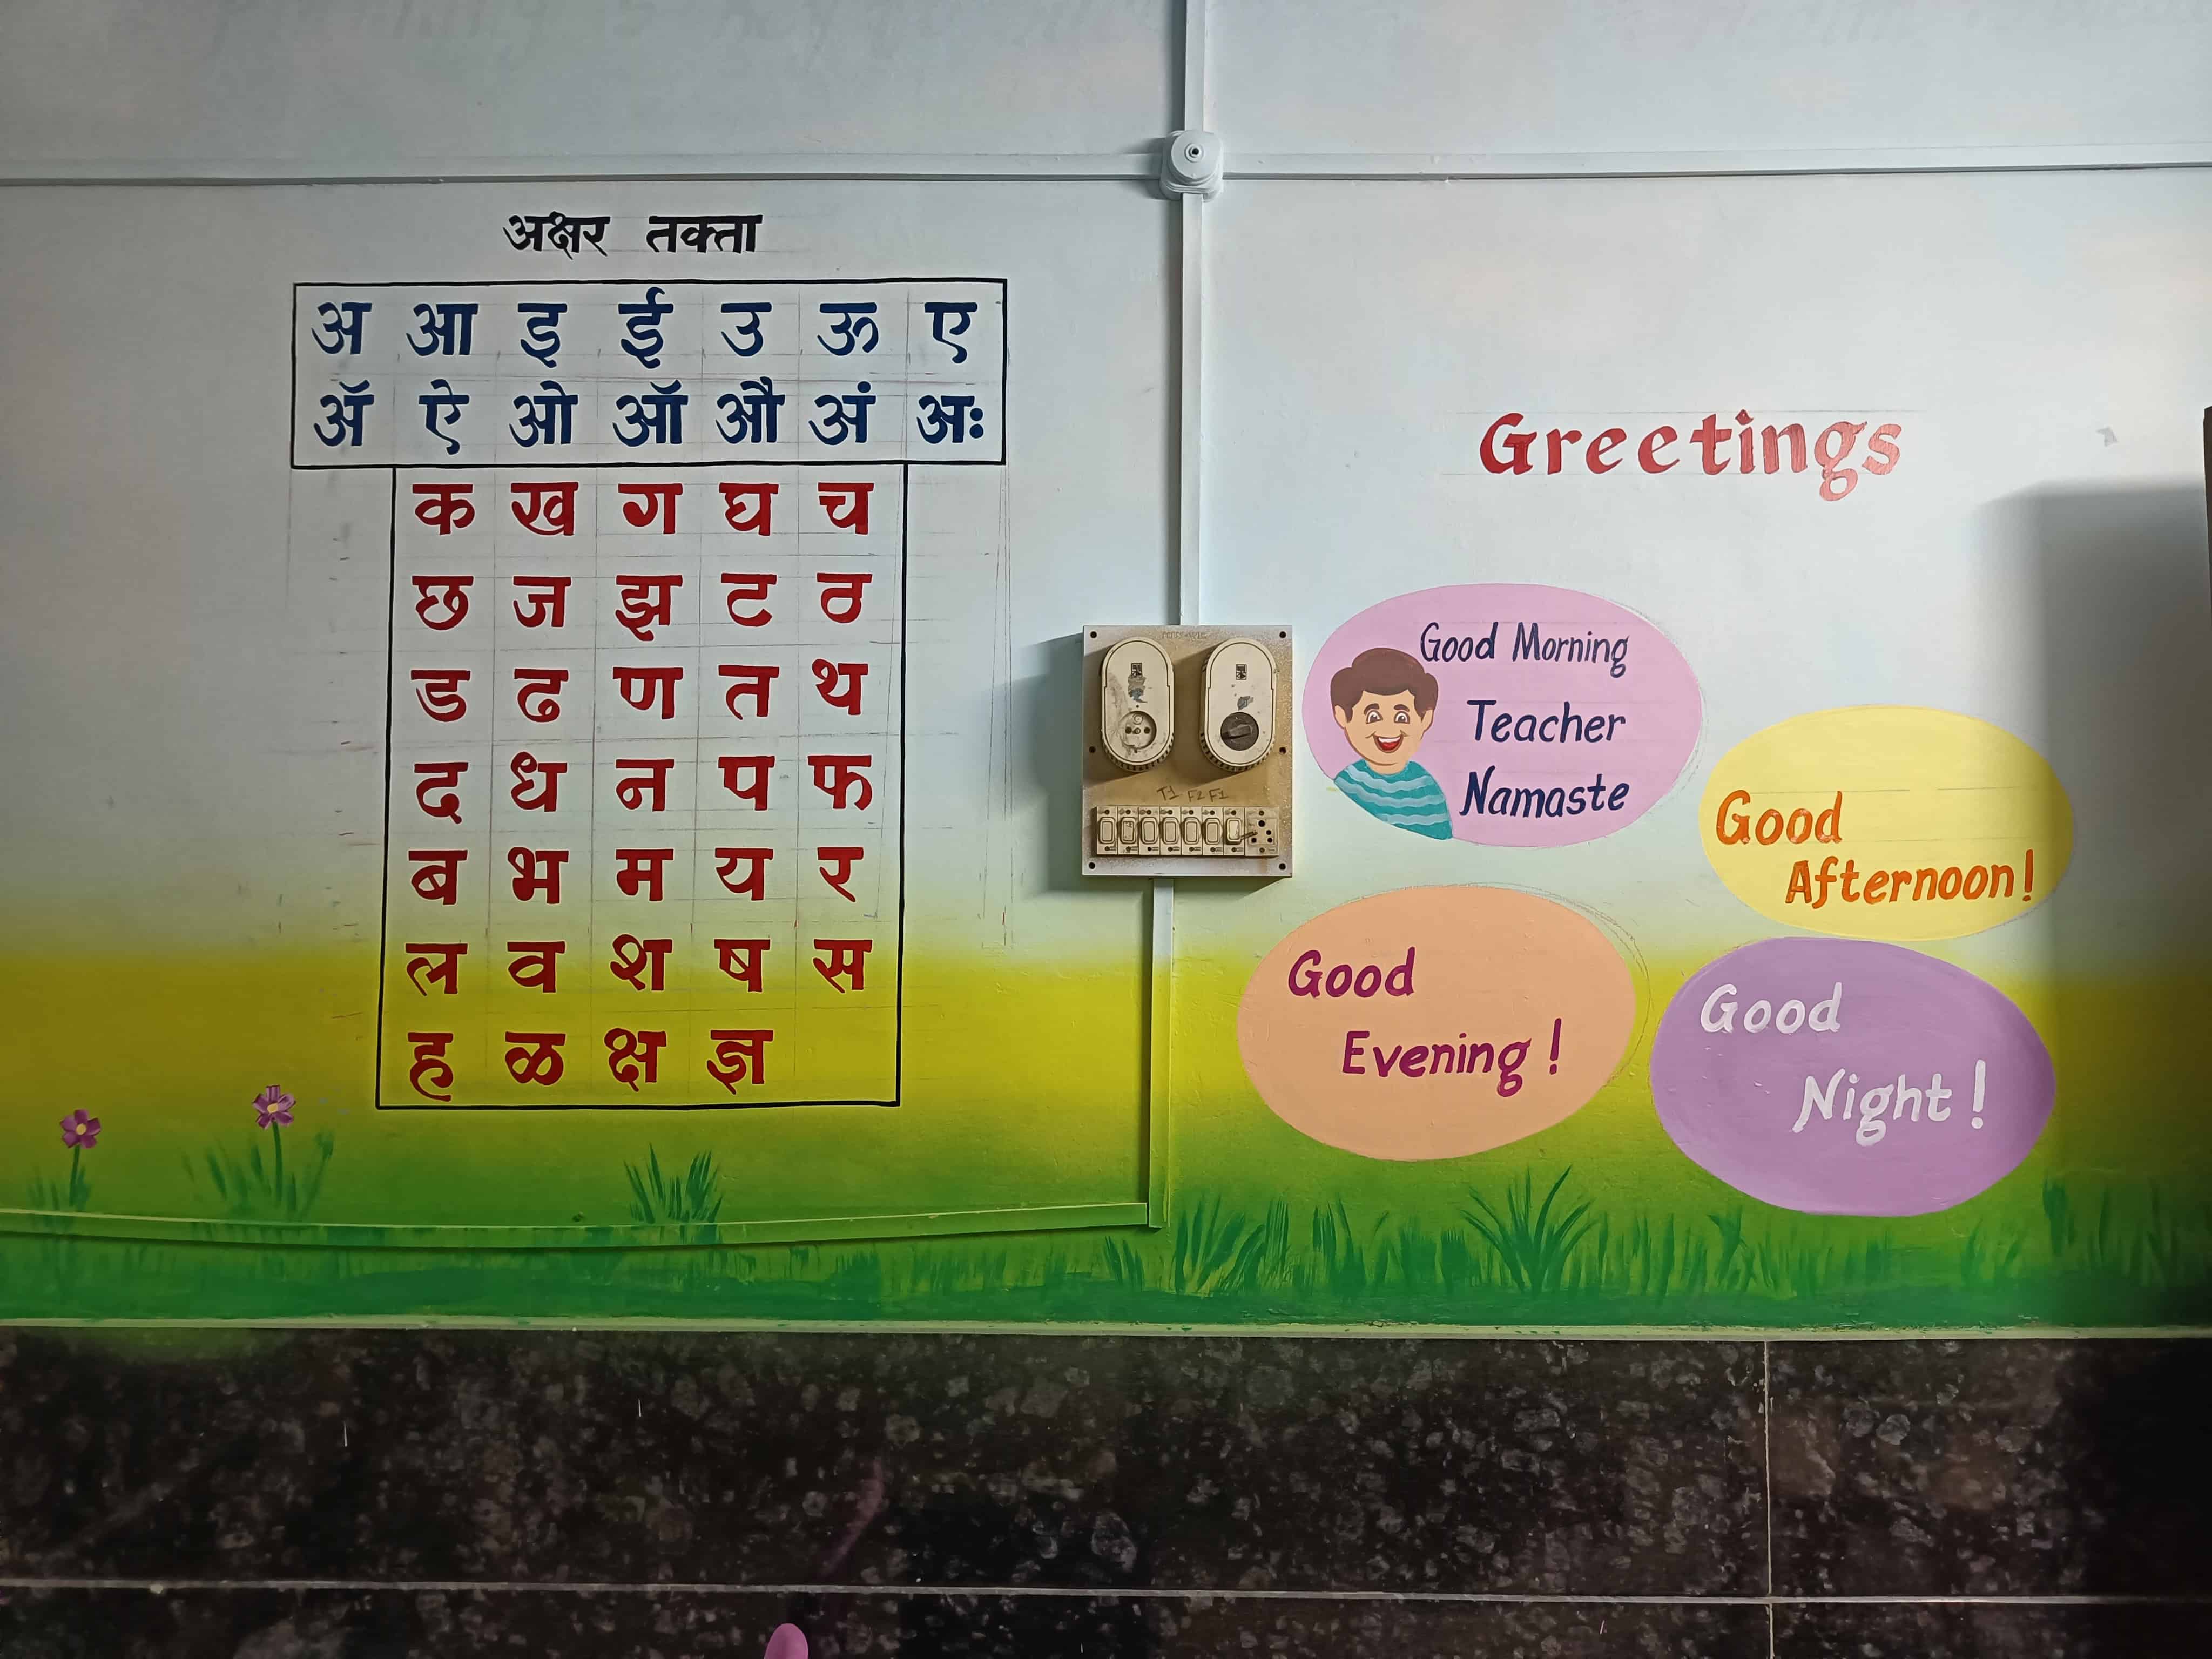 अक्षर तक्ता
अ आ इ ई उ ऊ ए
ॲ ऐ ओ ऑ औ अं अः
क ख ग घ च
छ ज झ ट ठ
ड ढ ण त थ
द ध न प फ
ब भ म य र
ल व श ष स
ह ळ क्ष ज्ञ
T1 F2 F1
Greetings
Good Morning
Teacher
Namaste
Good
Afternoon!
Good
Evening !
Good
Night !